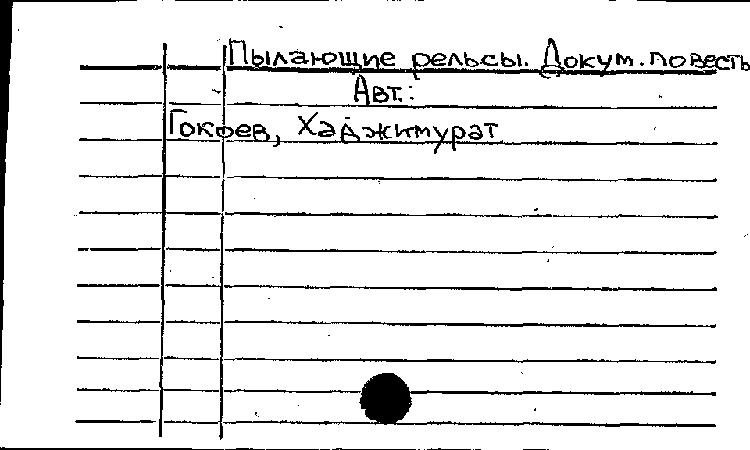 Пылающие рельсы. Докум. повесть
Авт.:
Гокоев, Хаджимурат